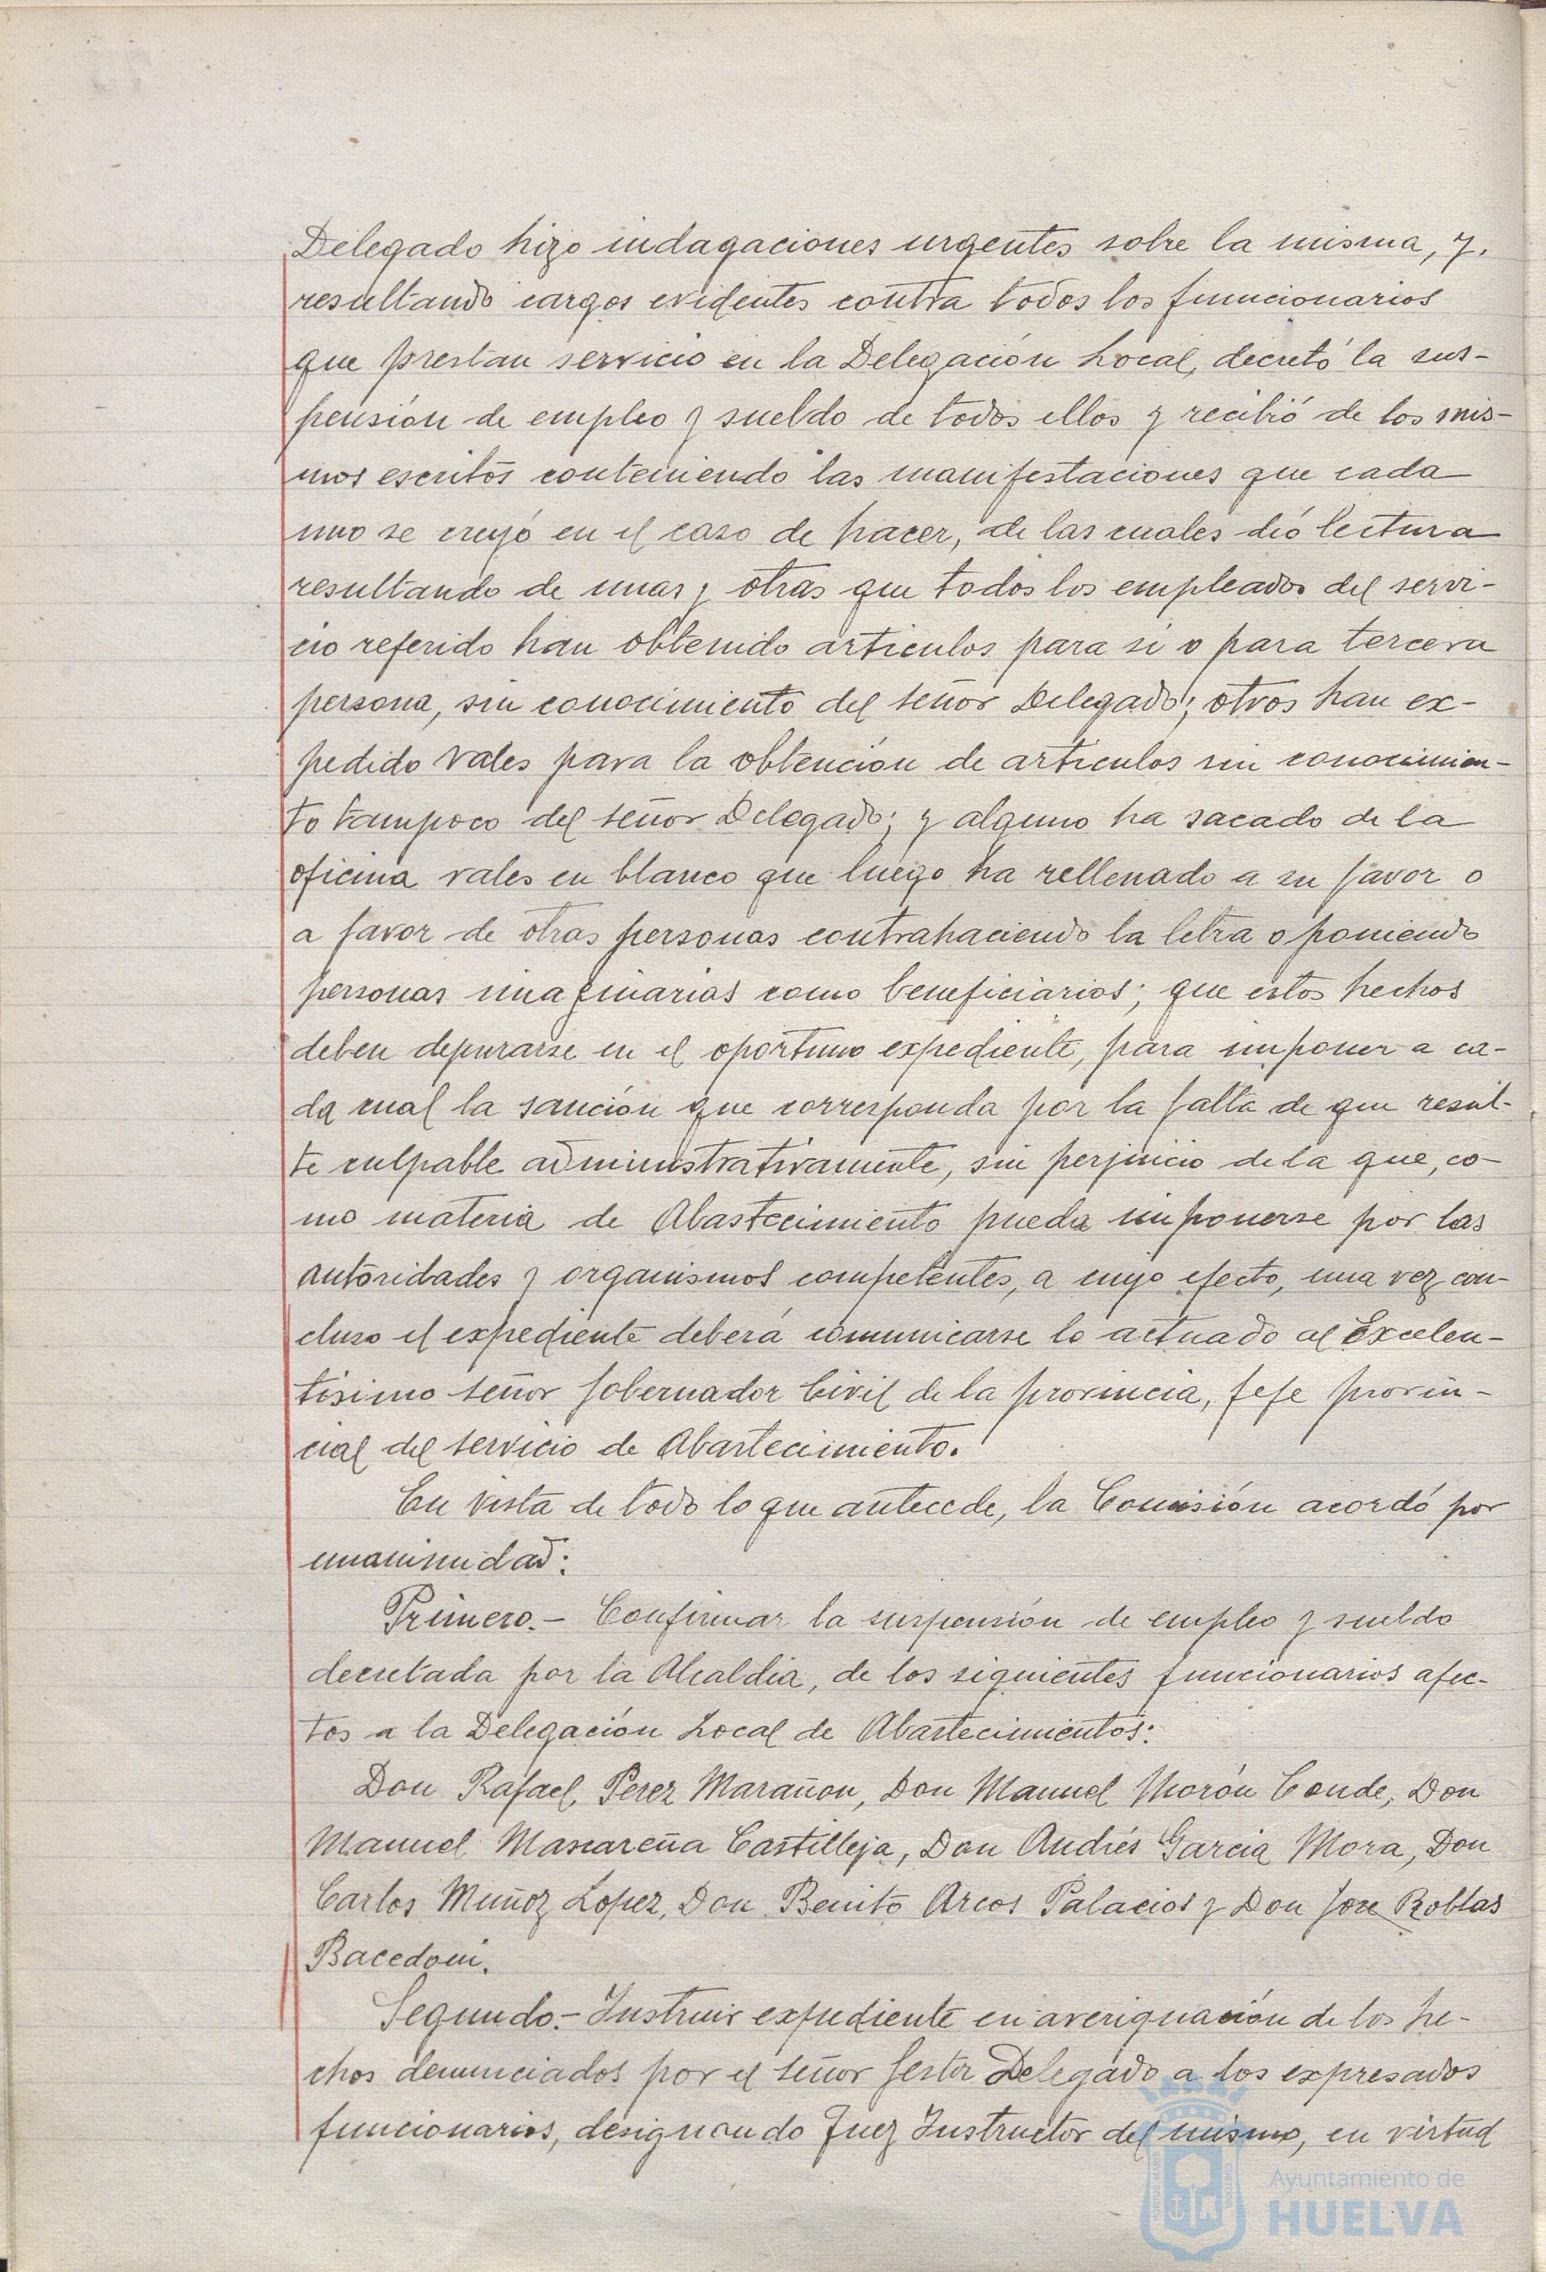 Delegado hizo indagaciones urgentes sobre la misma, y,
resultando cargos evidentes contra todos los funcionarios
que prestan servicio en la Delegación Local, decretó la sus-
pensión de empleo y sueldo de todos ellos y recibió de los mis-
mos escritos conteniendo las manifestaciones que cada
uno se creyó en el caso de hacer, de las cuales dió lectura
resultando de unas y otras que todos los empleados del servi-
cio referido han obtenido articulos para si o para tercera
persona, sin conocimiento del señor Delegado; otros han ex-
pedido vales para la obtención de articulos sin conocimien-
to tampoco del señor Delegado; y alguno ha sacado de la
oficina vales en blanco que luego ha rellenado a su favor o
a favor de otras personas contrahaciendo la letra o poniendo
personas imaginarias como beneficiarios; que estos hechos
deben depurarse en el oportuno expediente, para imponer a ca-
da cual la sanción que corresponda por la falta de que resul-
te culpable administrativamente, sin perjuicio de la que, co-
mo materia de Abastecimiento pueda imponerse por las
autoridades y organismos competentes, a cuyo efecto, una vez con-
cluso el expediente deberá comunicarse lo actuado al Excelen-
tisimo señor Gobernador Civil de la provincia, Jefe provin-
cial del servicio de Abastecimiento.
En vista de todo lo que antecede, la Comisión acordó por
unanimidad:
Primero.- Confirmar la suspensión de empleo y sueldo
decretada por la Alcaldia, de los siguientes funcionarios afec-
tos a la Delegación Local de Abastecimientos:
Don Rafael Perez Marañon, Don Manuel Morón Conde, Don
Manuel Mascareña Castilleja, Don Andrés Garcia Mora, Don
Carlos Muñoz Lopez, Don Benito Arcos Palacios y Don Jose Roblas
Bacedoni.
Segundo.- Instruir expediente en averiguación de los he-
chos denunciados por el señor Gestor Delegado a los expresados
funcionarios, designando Juez Instructor del mismo, en virtud
Ayuntamiento de
HUELVA